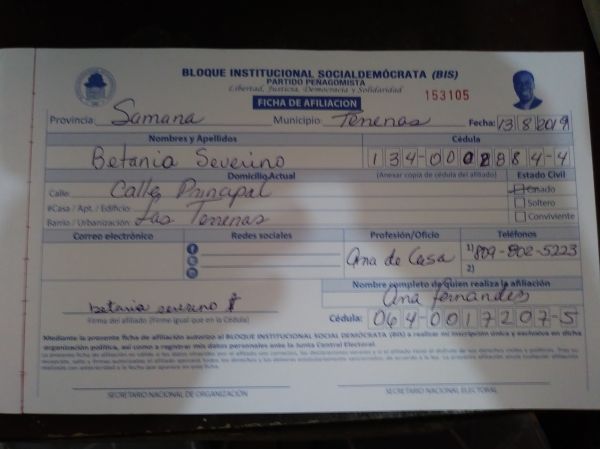 BLOQUE INSTITUCIONAL SOCIALDEMÓCRATA (BIS)
PARTIDO PEÑAGOMISTA
Libertad, Justicia, Democracia y Solidaridad
FICHA DE AFILIACION
153105
Provincia: Samana Municipio: Terrenas Fecha: 13/8/2019
Nombres y Apellidos Cédula
Betania Severino 134-0002884-4
Domicilio Actual (Anexar copia de cédula del afiliado) Estado Civil
Calle: Calle Principal Casado
#Casa / Apt. / Edificio: Soltero
Barrio / Urbanización: Las Terrenas Conviviente
Correo electrónico Redes sociales Profesión/Oficio Teléfonos
Ama de Casa 1) 809-802-5223
2)
Nombre completo de quien realiza la afiliación
betania severino Ana fernandes
Firma del afiliado (Firme igual que en la Cédula) Cédula: 064-0017207-5
Mediante la presente ficha de afiliación autorizo al BLOQUE INSTITUCIONAL SOCIAL DEMÓCRATA (BIS) a realizar mi inscripción única y exclusiva en dicha
organización política, así como a registrar mis datos personales ante la Junta Central Electoral.
SECRETARIO NACIONAL DE ORGANIZACIÓN SECRETARIO NACIONAL ELECTORAL